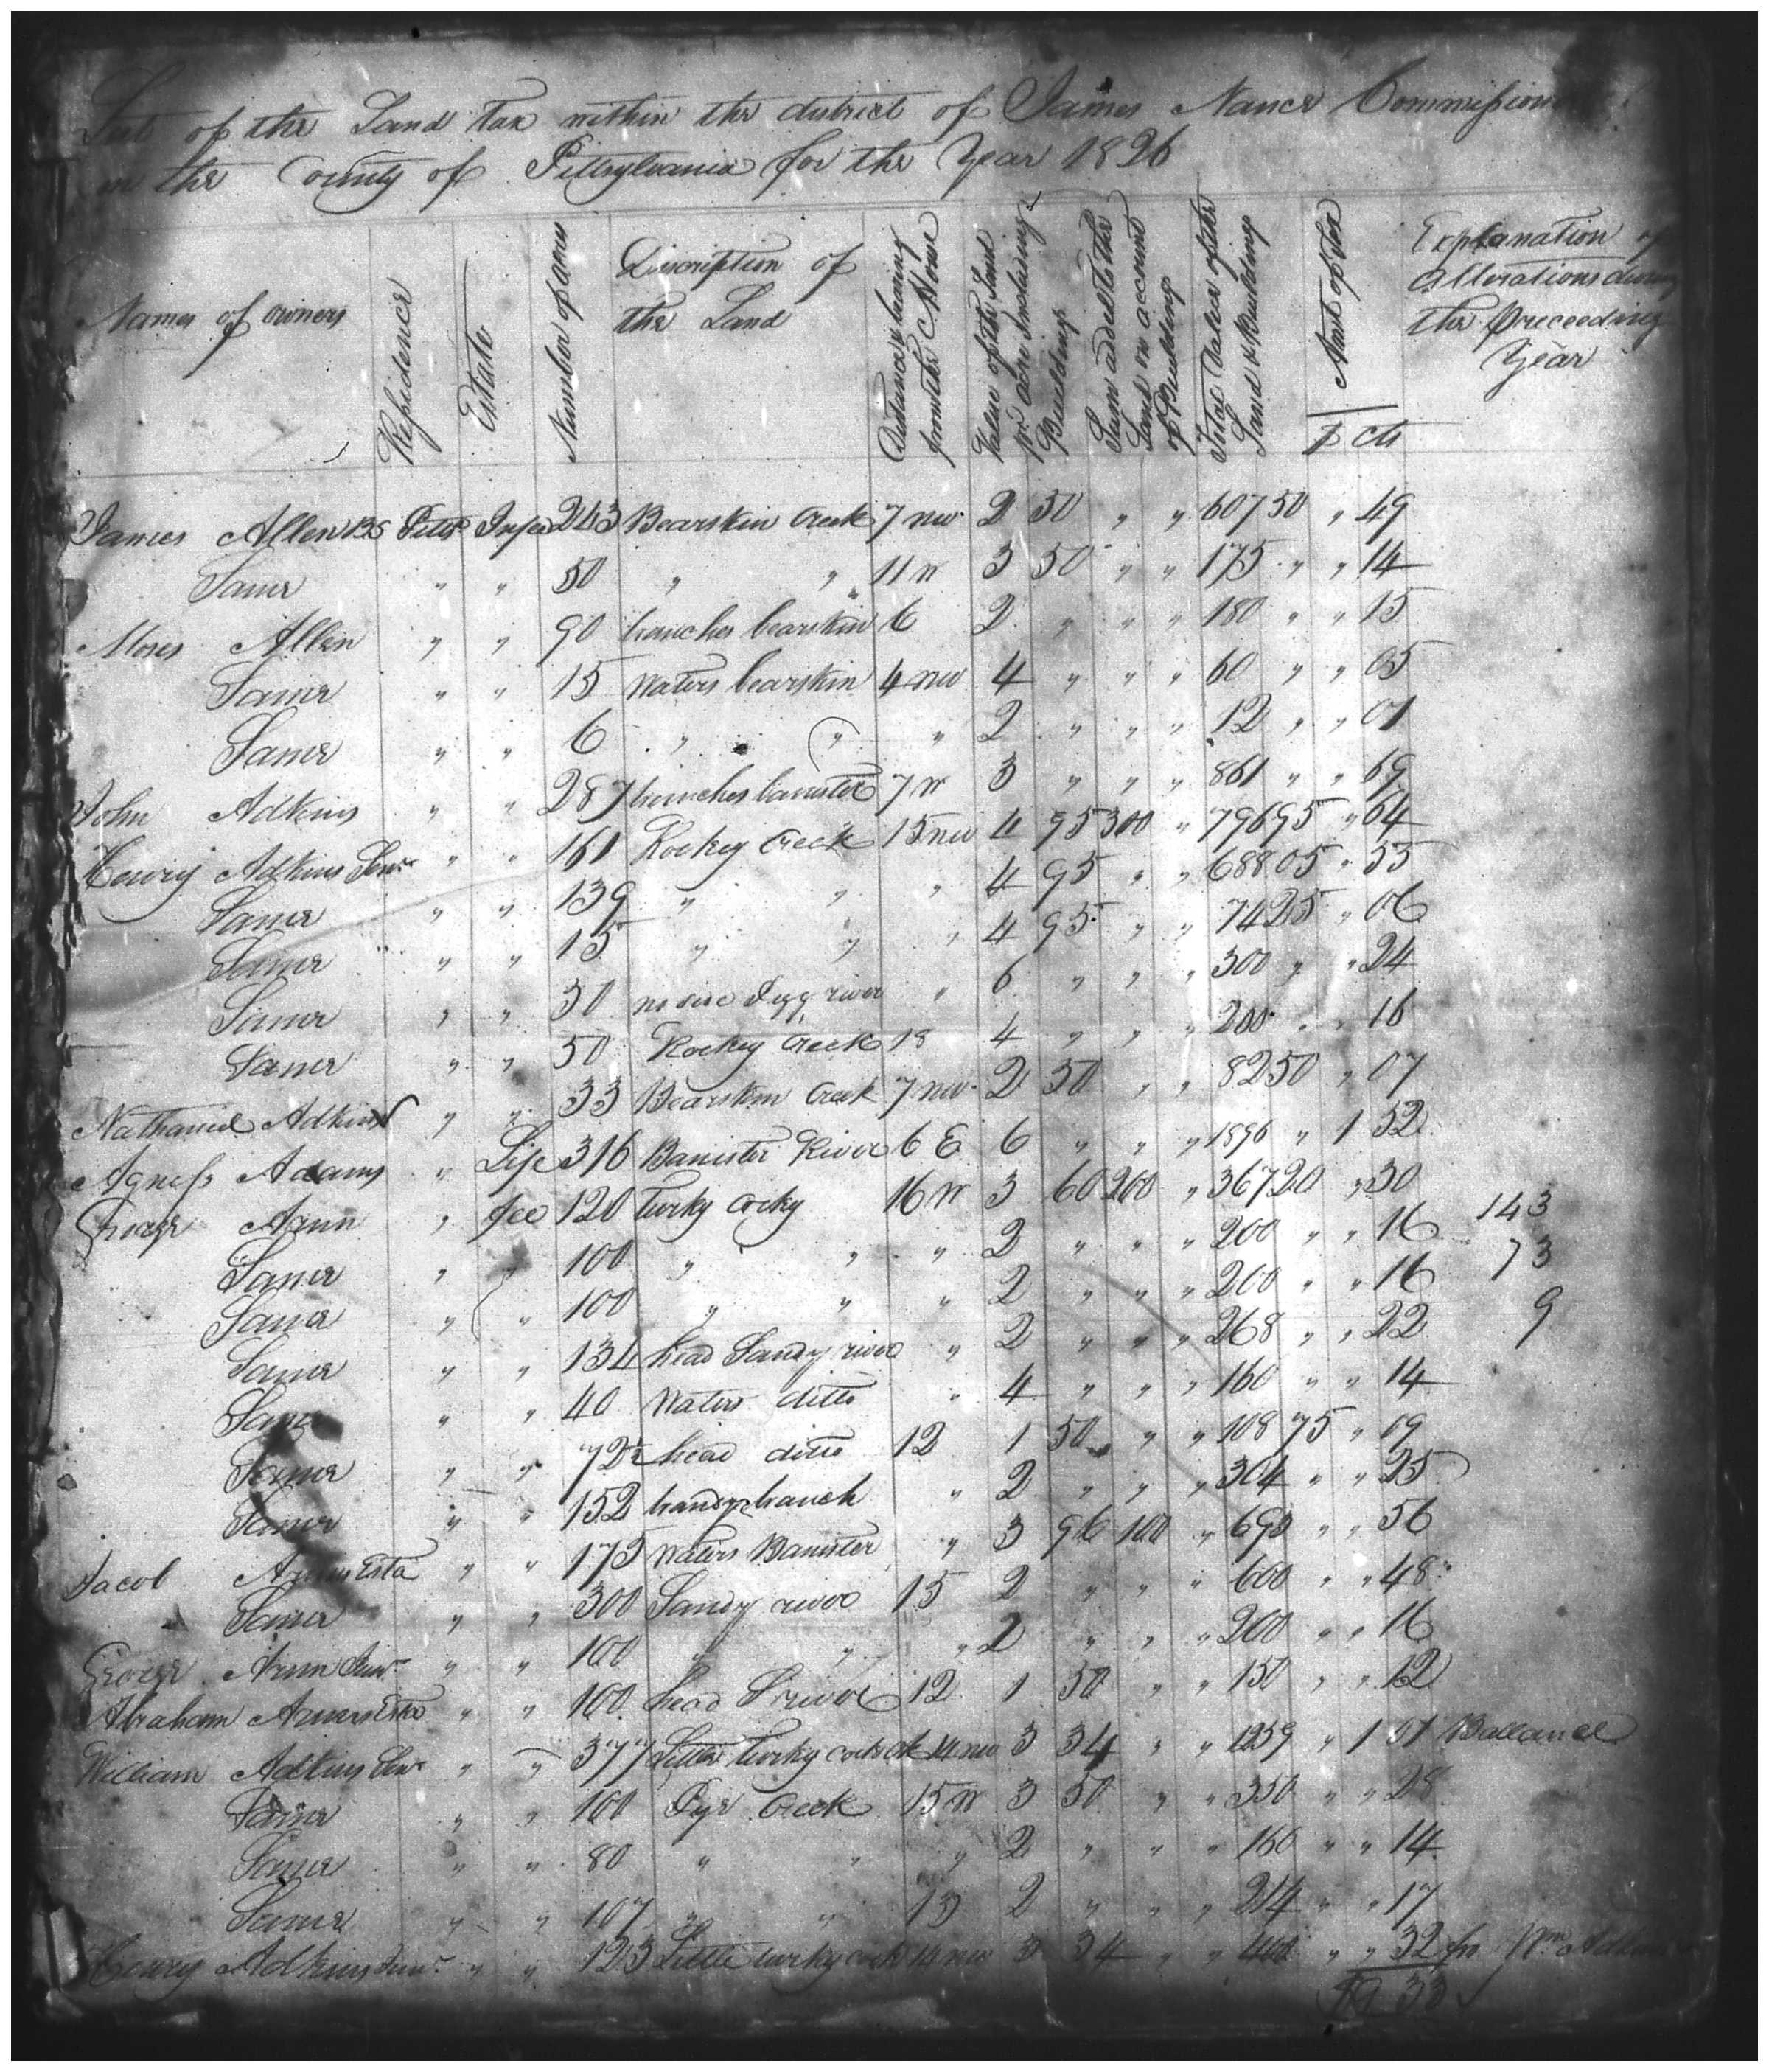 List of the Land tax within the district of James Nance Commissioner
in the County of Pittsylvania for the Year 1826
Names of owners Residence Estate Number of acres Discription of the Land Distance & bearing from the C House Value of the Land pr acre Including Buildings Sum added to the Land on account of Buildings Total Value of the Land & Buildings Amt of tax Explanation of alterations during the preceeding Year
$ cts
James Allen BS Pitts In fee 243 Bearskin Creek 7 nw 2 50 " " 607 50 " 49
Same " " 50 " " 11 W 3 50 " " 175 " " 14
Moses Allen " " 90 branches bearskin 6 2 " " " 180 " " 15
Same " " 15 waters bearskin 4 nw 4 " " " 60 " " 05
Same " " 6 " " " 2 " " " 12 " " 01
John Adkins " " 287 branches banister 7 W 3 " " " 861 " " 69
Henry Adkins Senr " " 161 Rockey Creek 15 nw 4 95 300 " 796 95 " 64
Same " " 139 " " " 4 95 " " 688 05 " 55
Same " " 15 " " " 4 95 " " 74 25 " 06
Same " " 50 no side Pigg river " 6 " " " 300 " " 24
Same " " 50 Rockey Creek 18 4 " " " 200 " " 16
Nathaniel Adkins " " 33 Bearskin Creek 7 nw 2 50 " " 82 50 " 07
Agness Adams " Life 316 Banister River 6 E 6 " " " 1896 " 1 52
George Arun " fee 120 turky cocky 16 W 3 60 200 " 367 20 " 30 143
Same " " 100 " " " 2 " " " 200 " " 16 73
Same " " 100 " " " 2 " " " 200 " " 16 9
Same " " 134 head Sandy river " 2 " " " 268 " " 22
Same " " 40 waters ditto " 4 " " " 160 " " 14
Same " " 72½ head ditto 12 1 50 " " 108 75 " 09
Same " " 152 branch " 2 " " " 304 " " 25
Jacob Esta " " 175 waters Banister " 3 96 100 " 693 " " 56
Same " " 300 Sandy river 15 2 " " " 600 " " 48
George Arun Junr " " 100 " " " 2 " " " 200 " " 16
Abraham Esta " " 100 head S river 12 1 50 " " 150 " " 12
William Adkins Senr " " 377 Little turky cock ck 14 nw 3 34 " " 1259 " 1 01 Ballance
Same " " 100 Pye Creek 15 W 3 50 " " 350 " " 28
Same " " 80 " " " 2 " " " 160 " " 14
Same " " 107 " " 13 2 " " " 214 " " 17
Henry Adkins Junr " " 123 Little turky cock 14 nw 3 34 " " " " 32 fm Wm Adkins
$9 33